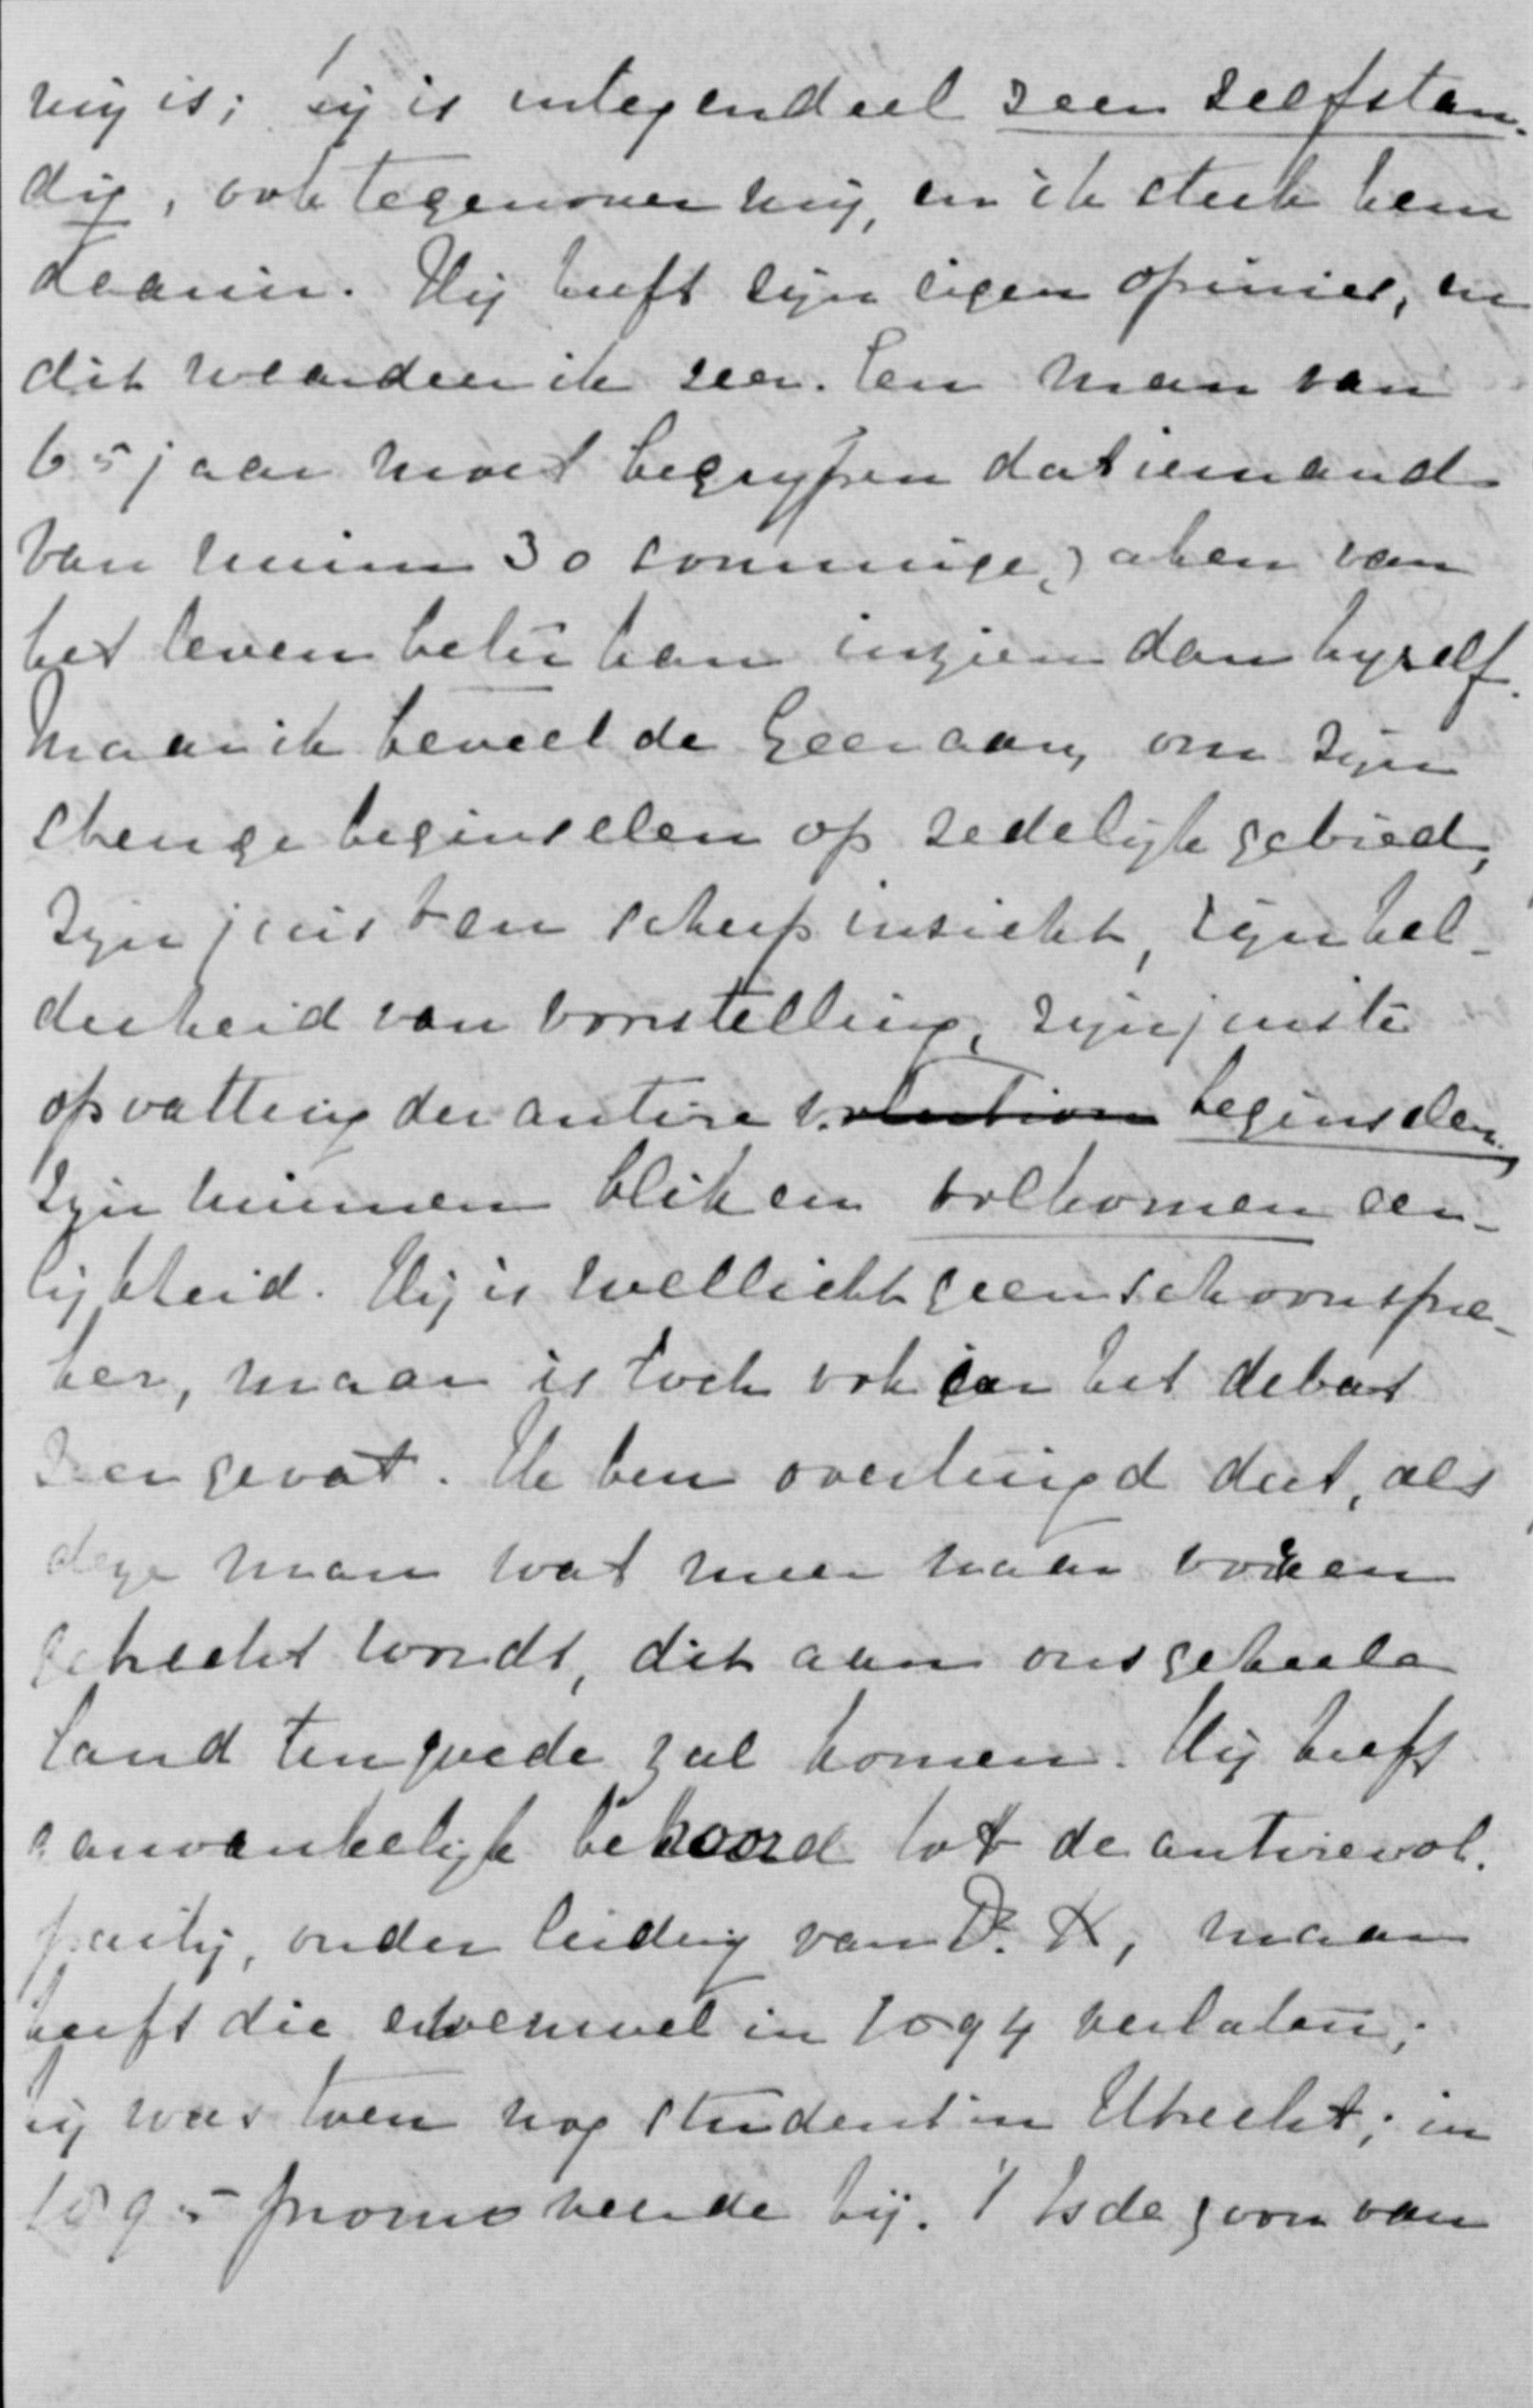 mij is; hij is integendeel zeer zelfstan-
dig, ook tegenover mij, en ik sterk hem
daarin. Hij heeft zijn eigen opinies, en
dit waardeer ik zeer. Een man van
65 jaar moet begrijpen dat iemand
van ruim 30 sommige zaken van
het leven beter kan inzien dan hijzelf.
Maar ik beveel de Geer aan, om zijn
strenge beginselen op zedelijk gebied,
zijn juist en scherp inzicht, zijn hel-
derheid van voorstelling, zijn juiste
opvatting der antirevolution beginselen,
zijn ruimen blik en volkomen eer-
lijkheid. Hij is wellicht geen schoonspre-
ker, maar is toch ook in het debat
zeer gevat. Ik ben overtuigd dat, als
deze man wat meer naar voren
gebracht wordt, dit aan ons geheele
land ten goede zal komen. Hij heeft
aanvankelijk behoord tot de antirevol.
partij, onder leiding van Dr. K, maar
heeft die evenwel in 1894 verlaten;
hij was toen nog student in Utrecht; in
1895 promoveerde hij. 't Is de zoon van